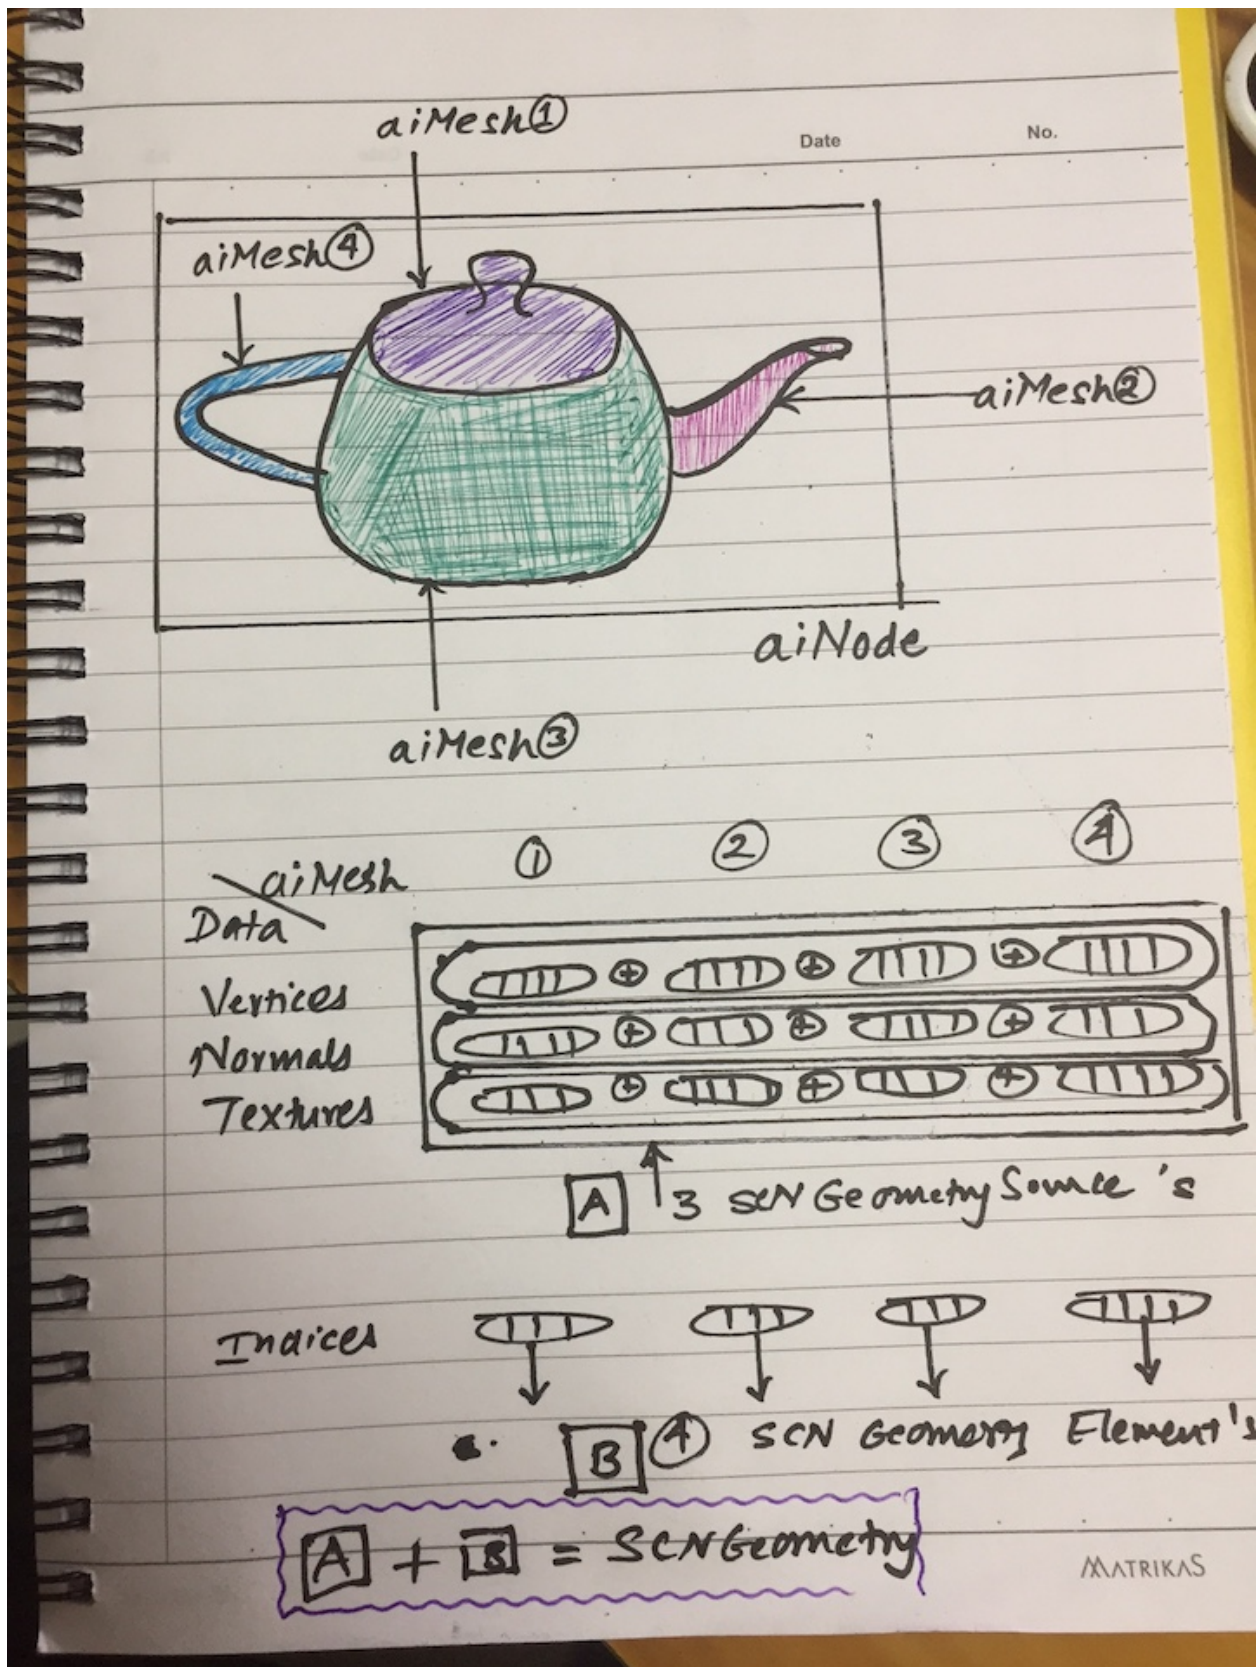 aiMesh①
Date No.
aiMesh④
aiMesh②
aiNode
aiMesh③
① ② ③ ④
aiMesh
Data
Vertices ⊕ ⊕ ⊕
Normals ⊕ ⊕ ⊕
Textures ⊕ ⊕ ⊕
A 3 SCN Geometry Source's
Indices
B ④ SCN Geometry Element's
A + B = SCNGeometry
MATRIKAS